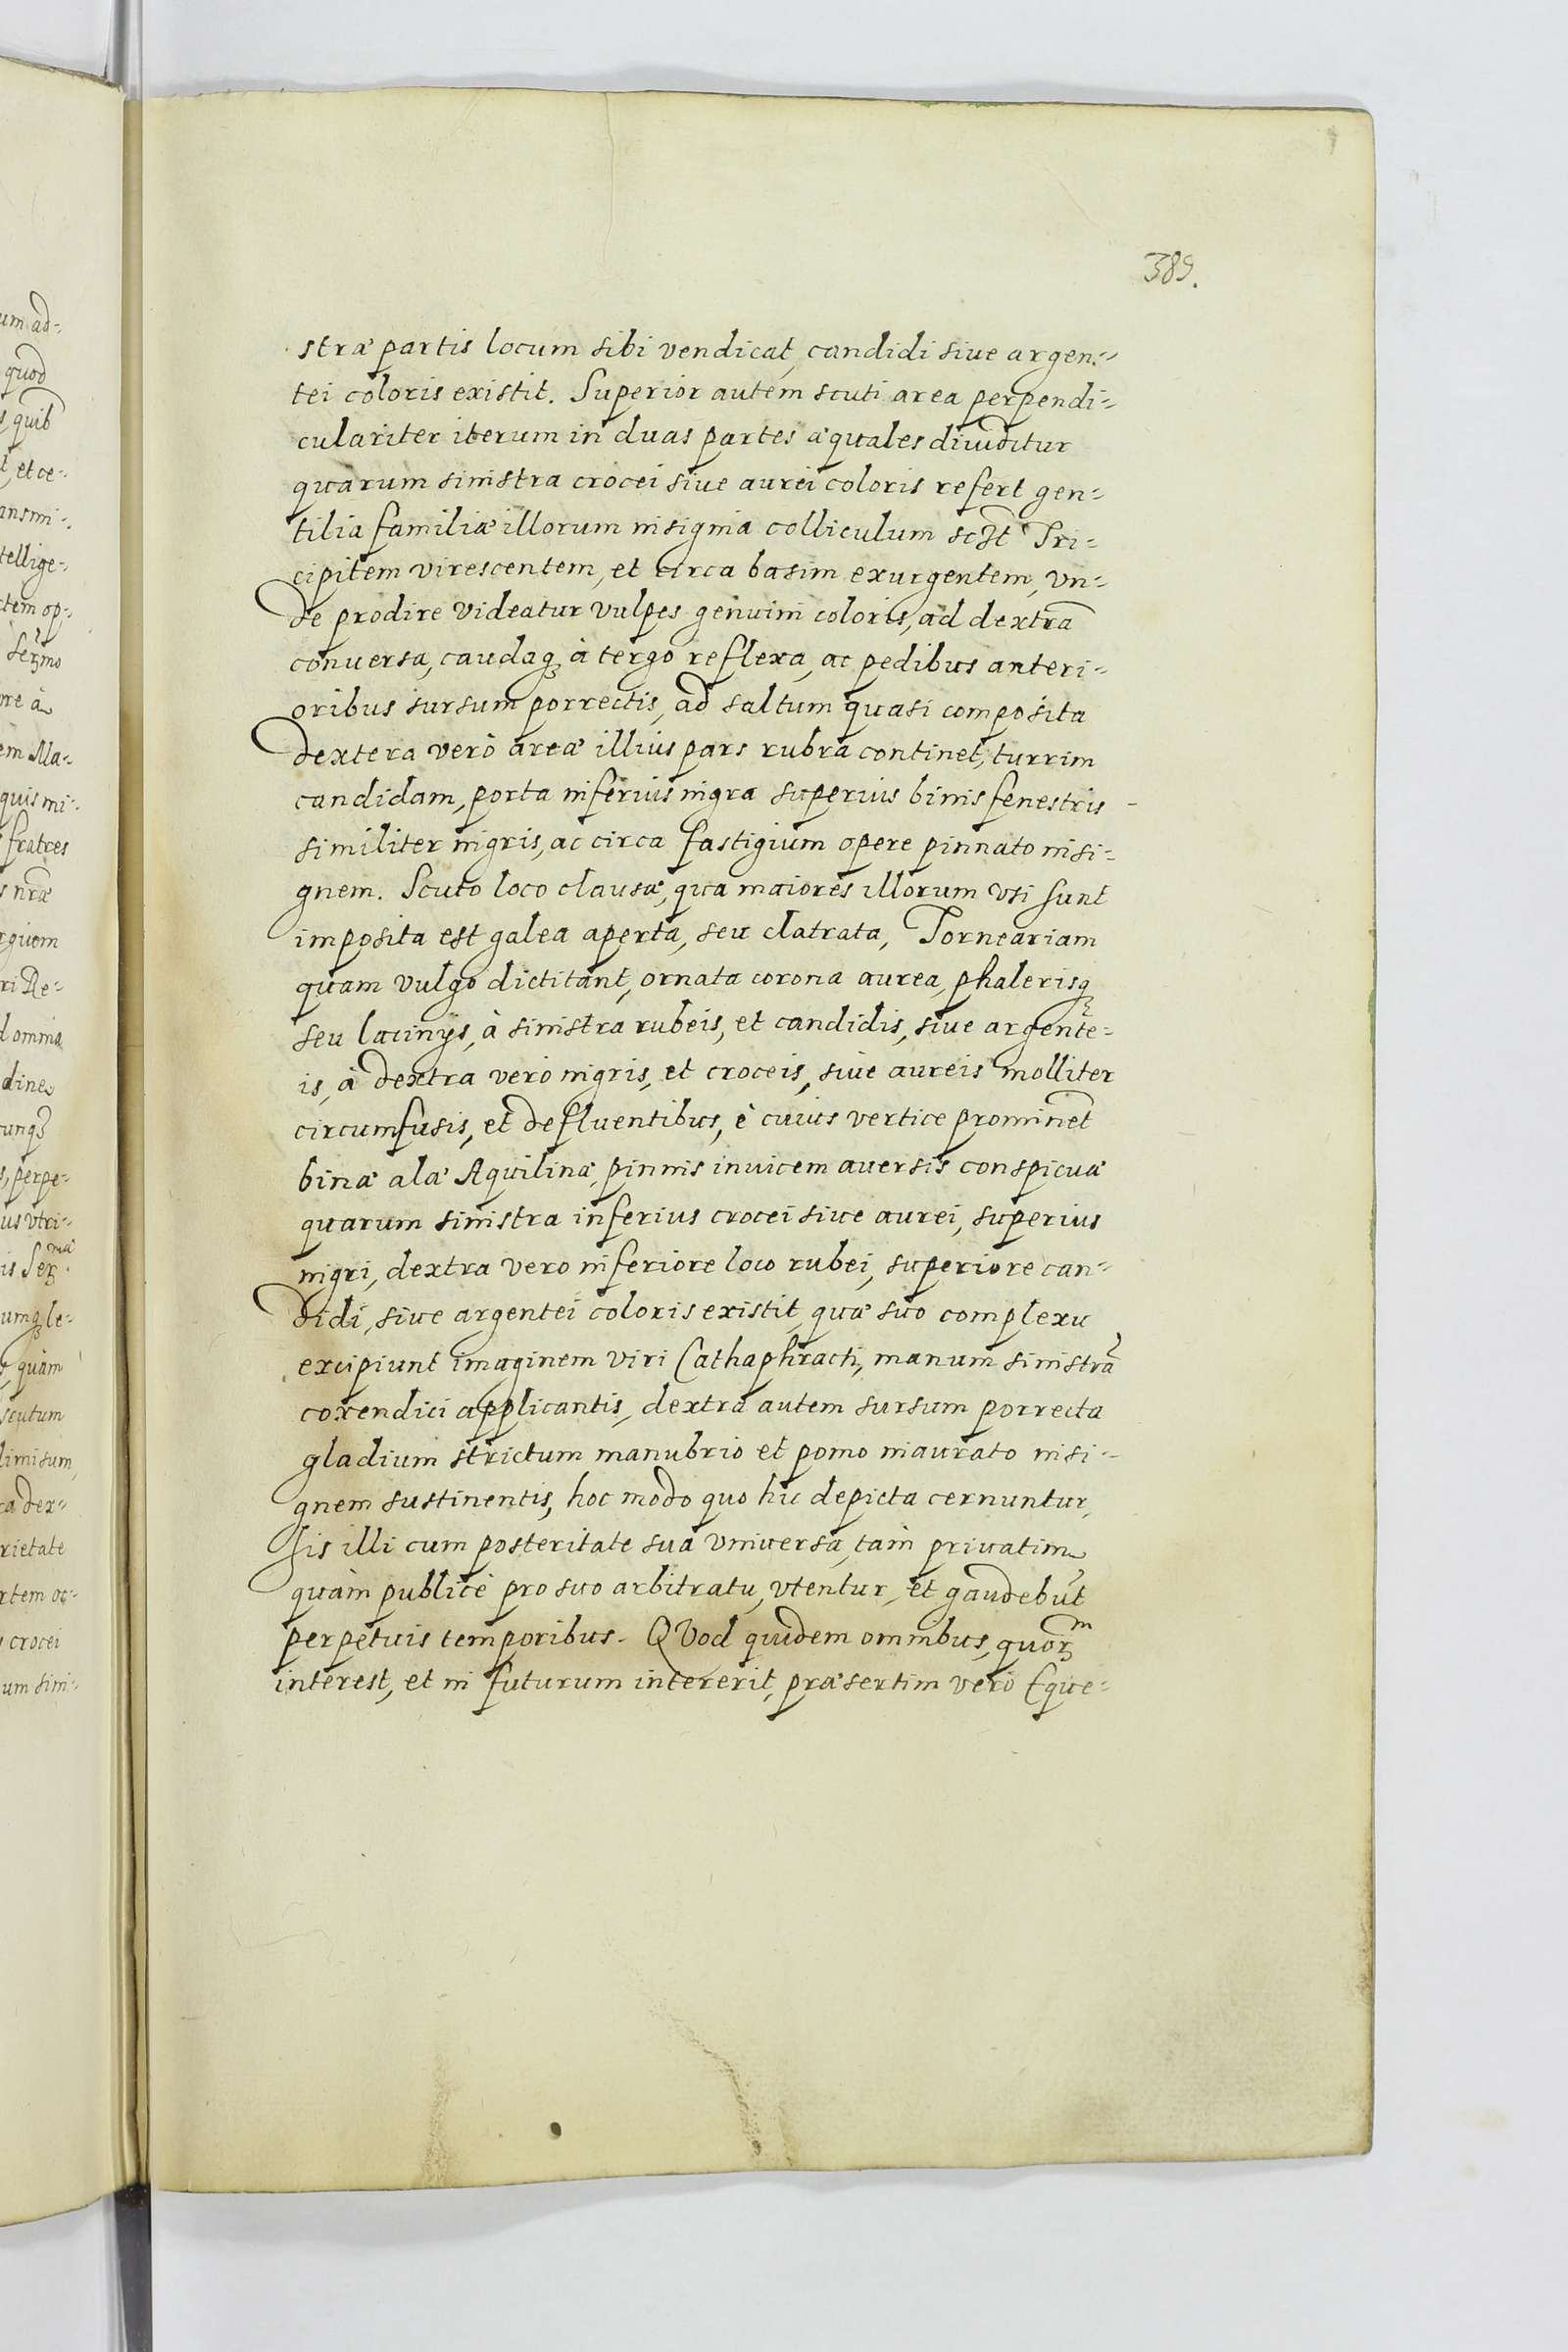 389.
um ad=
quod
s, quib
t, et ce=
ansmi=
tellige=
ctem op=
Serꝫmo
ore à
em Ma=
quis mi=
fratres
s nr̃æ
rguem
ri Re=
d omnia
dine
cunqꝫ
s, perpe=
us vtri=
is Serꝫmæ
umqꝫ le=
t, quàm
scutum
dimisum
ca dex=
rietate
rtem oc=
crocei
um sini=
stræ partis locum sibi vendicat, candidi siue argen=
tei coloris existit. Superior autem scuti area perpendi=
culariter iterum in duas partes æquales diuiditur
quarum sinistra crocei siue aurei coloris refert gen=
tilia familiæ illorum insignia colliculum sclt Tri=
cipitem virescentem, et circa basim exurgentem, vn=
de prodire videatur vulpes genuini coloris, ad dextrã
conuersa, caudaqꝫ à tergo reflexa, ac pedibus anteri=
oribus sursum porrectis, ad saltum quasi composita
dextera verò areæ illius pars rubra continet, turrim
candidam, porta inferius nigra superius binis fenestris
similiter nigris, ac circa fastigium opere pinnato insi=
gnem. Scuto loco clausæ, qua maiores illorum vsi sunt
imposita est galea aperta, seu clatrata, Torneariam
quam vulgo dictitant, ornata corona aurea, phalerisqꝫ
seu lacinijs, à sinistra rubeis, et candidis, siue argente=
is, à dextra verò nigris, et croceis, siue aureis molliter
circumfusis, et defluentibus, è cuius vertice prominẽt
binæ alæ Aquilinæ, pinnis inuicem auersis conspicuæ
quarum sinistra inferius crocei siue aurei, superius
nigri, dextra vero inferiore loco rubei, superiore can=
didi, siue argentei coloris existit, quæ suo complexu
excipiunt imaginem viri Cathaphracti, manum sinistrã
coxendici applicantis, dextra autem sursum porrecta
gladium strictum manubrio et pomo inaurato insi=
gnem sustinentis, hoc modo quo hic depicta cernuntur,
His illi cum posteritate sua vniuersa, tam priuatim
quàm publicè pro suo arbitratu, vtentur, et gaudebũt
perpetuis temporibus. QVod quidem omnibus, quorꝫm
interest, et in futurum intererit, præsertim verò Eque=